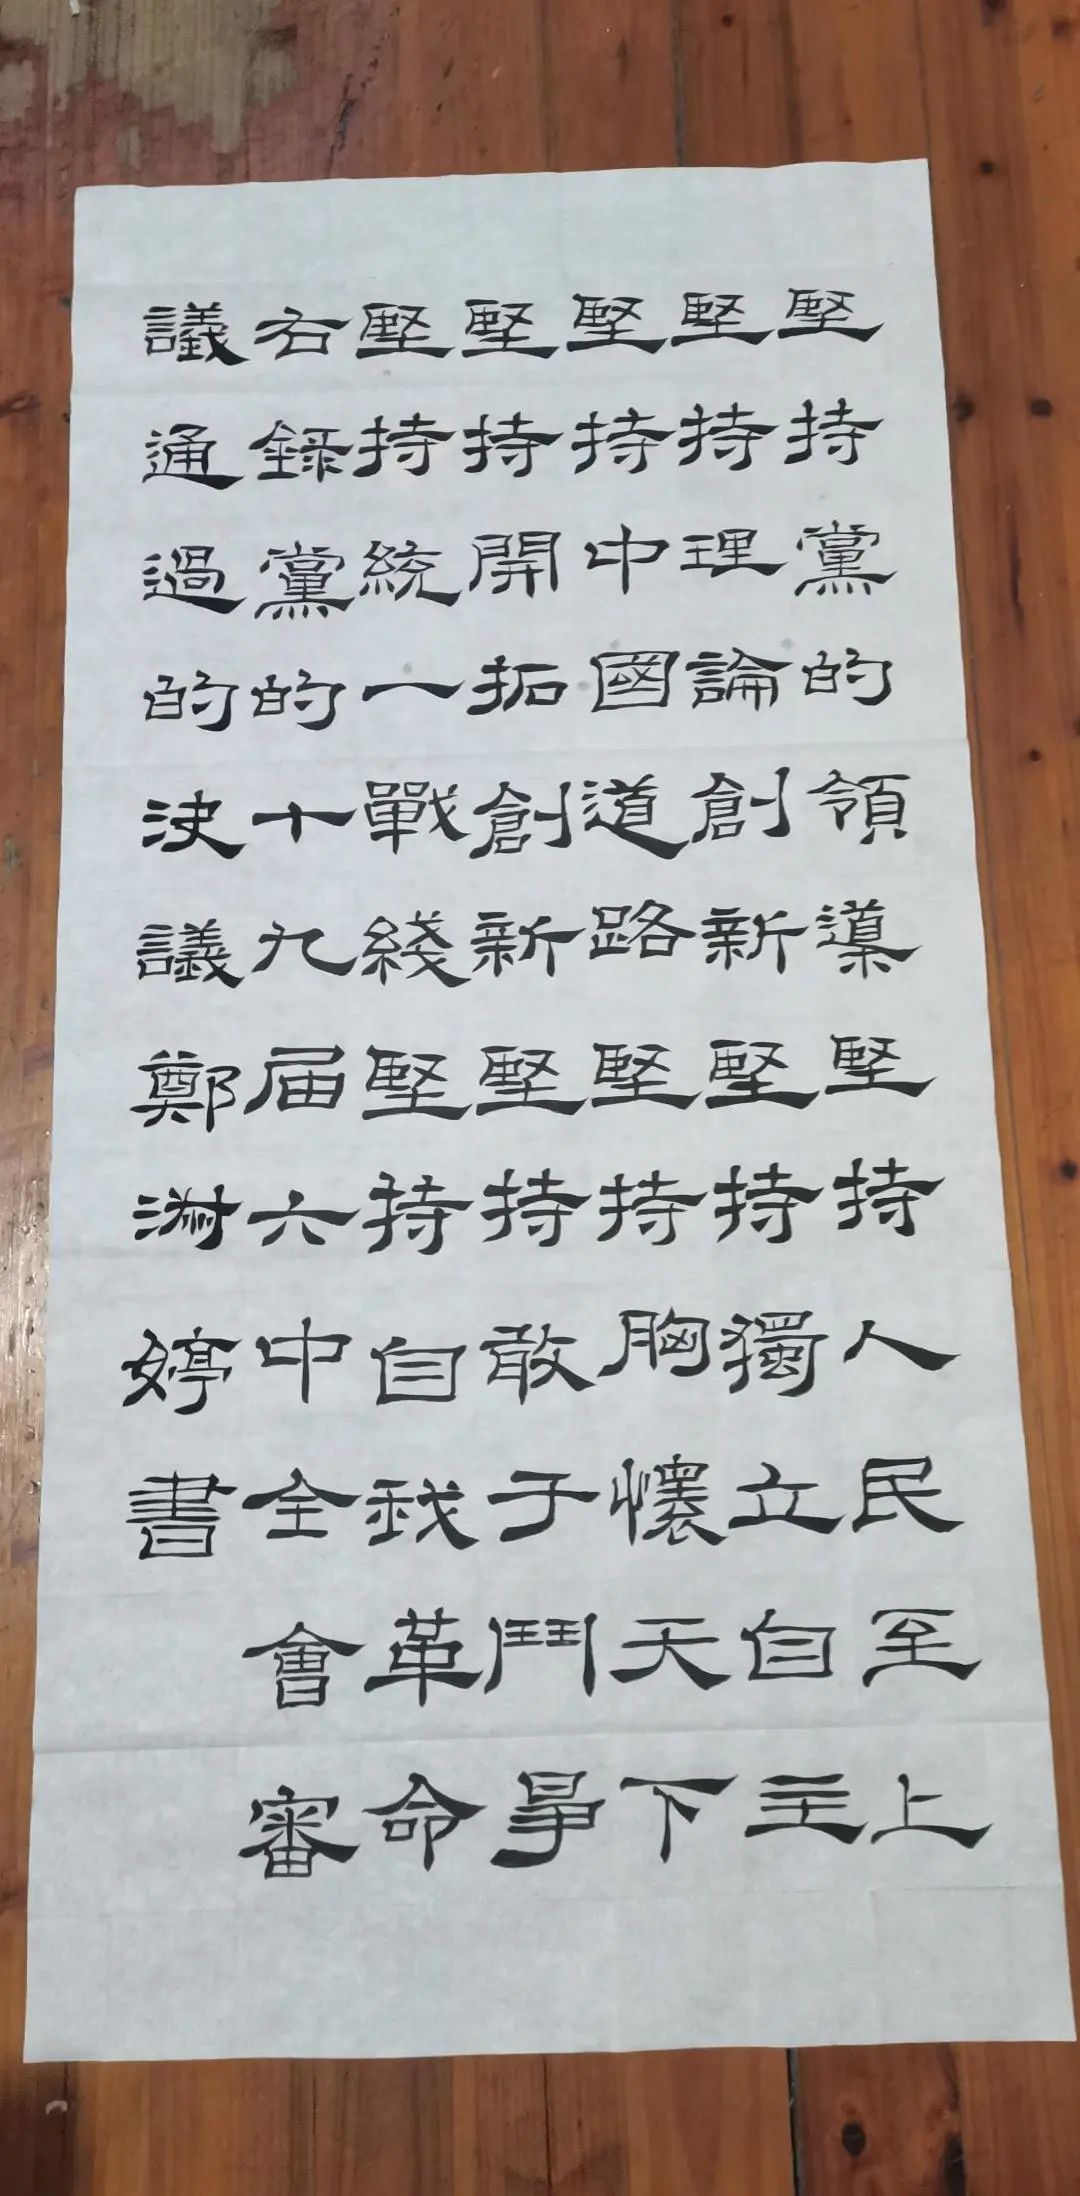 堅持黨的領導堅持人民至上
堅持理論創新堅持獨立自主
堅持中國道路堅持胸懷天下
堅持開拓創新堅持敢于鬥爭
堅持統一戰綫堅持自我革命
右錄黨的十九届六中全會審
議通過的决議鄭淋婷書